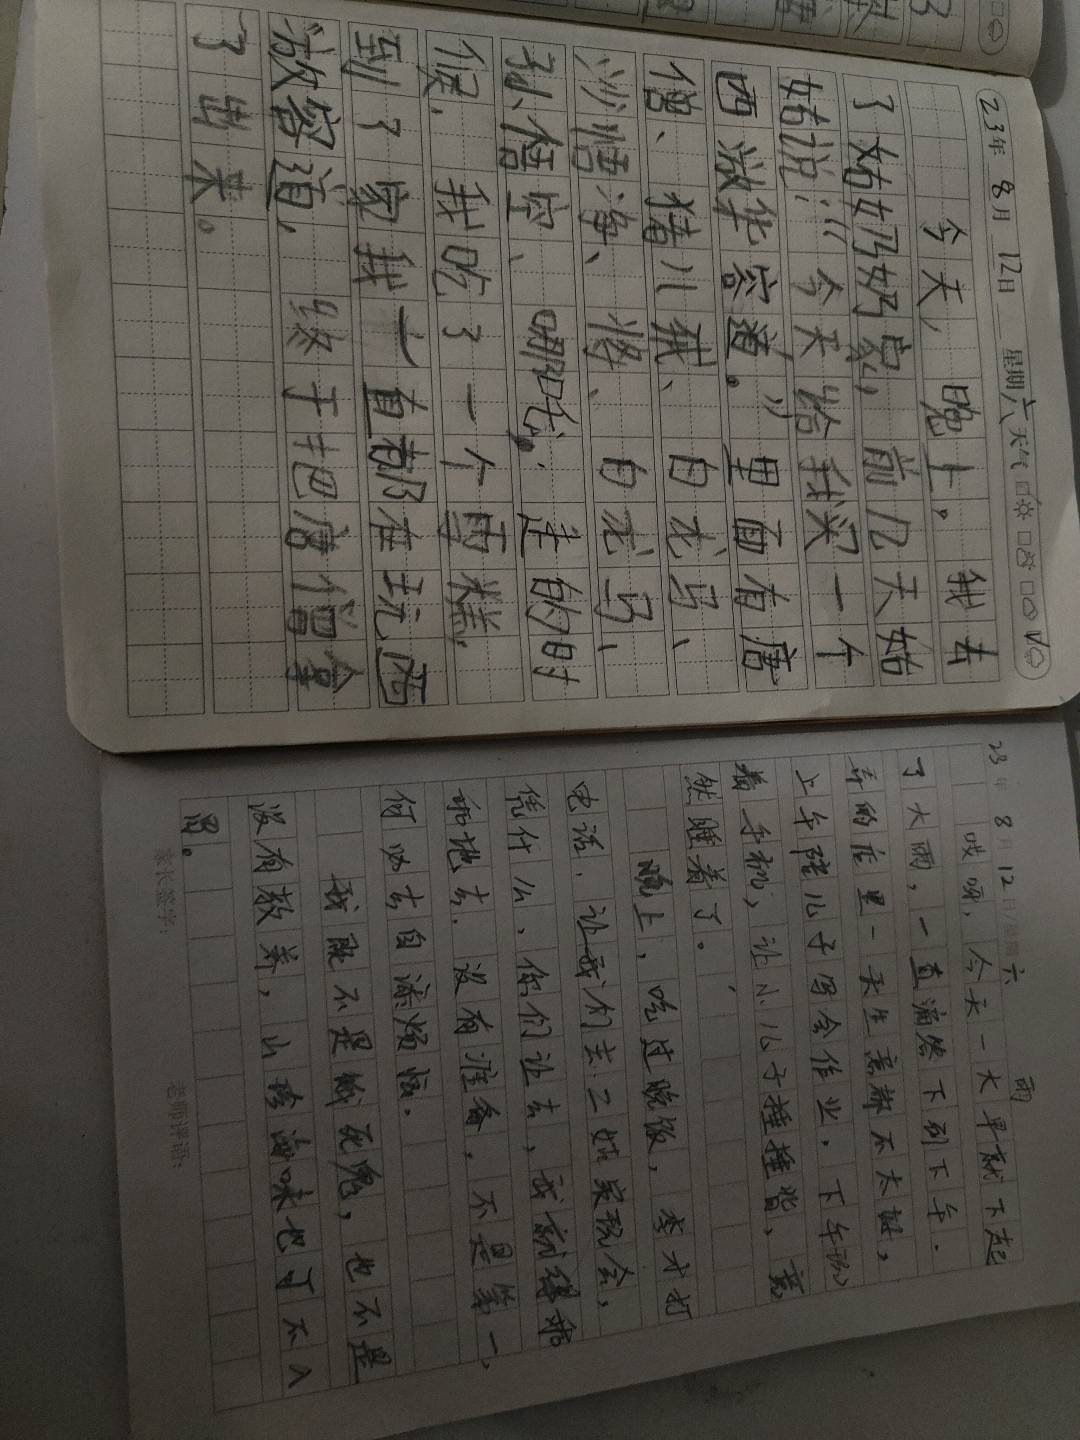 23年8月12日 星期六 天气
今天，晚上。我去
了姑奶奶家，前几天姑
姑说：“今天给我买一个
西游华容道。”里面有唐
僧、猪八戒、白龙马、
沙悟净、将、白龙马、
孙悟空、哪吒，走的时
候，我吃了一个雪糕，
到了家我一直都在玩西
游容道，终于把唐僧拿
了出来。
23年8月12日/星期六 雨
哎呀，今天一大早就下起
了大雨，一直滴答下到下午．
弄的店里一天生意都不太好，
上午陪儿子写会作业．下午玩
着手机，让小儿子捶捶背、竟
然睡着了。
晚上，吃过晚饭，李才打
电话．让我们去二姑家玩会，
凭什么，你们让去，我就得
去．没有准备．不是第一，
何必去自添烦恼．
我既不是饿死鬼，也不是
没有教养，山珍海味也可不入
胃。
家长签字：
老师评语：